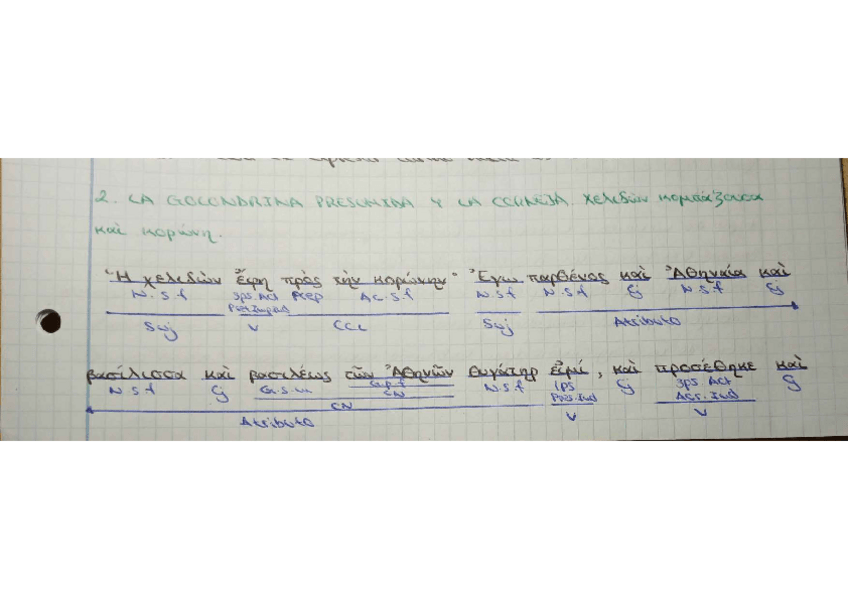 2. LA GOLONDRINA PRESUMIDA Y LA CORNEJA. χελιδὼν κομπάζουσα
καὶ κορώνη.
"Ἡ χελιδὼν ἔφη πρὸς τὴν κορώνην" Ἐγω παρθένος καὶ Ἀθηναία καὶ
N.S.f 3ps.Act Prep Ac.S.f N.S.f N.S.f Cj N.S.f Cj
Suj V CCL Suj Atributo
βασίλισσα καὶ βασιλέως τῶν Ἀθηνῶν θυγάτηρ εἰμί, καὶ προσέθηκε καὶ
N.S.f Cj G.S.m G.p.f N.S.f 1ps Cj 3ps Act Cj
CN Pres.Ind Aor.Ind
CN V V
Atributo